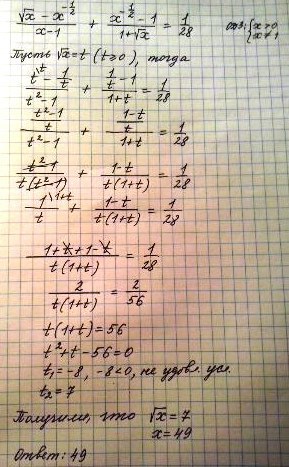 (√x − x^(−1/2))/(x−1) + (x^(−1/2) − 1)/(1+√x) = 1/28 ОДЗ: {x>0 x≠1
Пусть √x = t (t≥0), тогда
(t − 1/t)/(t²−1) + (1/t − 1)/(1+t) = 1/28
((t²−1)/t)/(t²−1) + ((1−t)/t)/(1+t) = 1/28
(t²−1)/(t(t²−1)) + (1−t)/(t(1+t)) = 1/28
1/t + (1−t)/(t(1+t)) = 1/28
(1+t+1−t)/(t(1+t)) = 1/28
2/(t(1+t)) = 2/56
t(1+t) = 56
t²+t−56=0
t₁=−8, −8<0, не удовл. усл.
t₂=7
Получили, что √x = 7
x=49
Ответ: 49